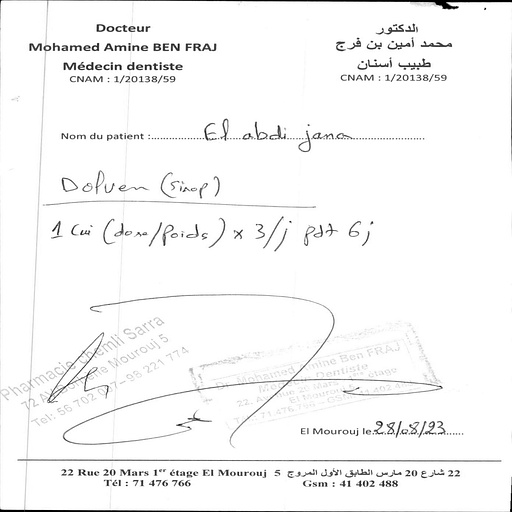 Docteur
Mohamed Amine BEN FRAJ
Médecin dentiste
CNAM : 1/20138/59
الدكتور
محمد أمين بن فرج
طبيب أسنان
CNAM : 1/20138/59
Nom du patient : El abdi jana
Dolven (sirop)
1 Cui (dose/poids) x 3/j pdt 6j
Pharmacie Chemli Sarra
Mourouj 5
98 221 774
Dr Mohamed Amine Ben FRAJ
Médecin Dentiste
El Mourouj le 28/08/23
22 Rue 20 Mars 1er étage El Mourouj 5 22 شارع 20 مارس الطابق الأول المروج
Tél : 71 476 766 Gsm : 41 402 488